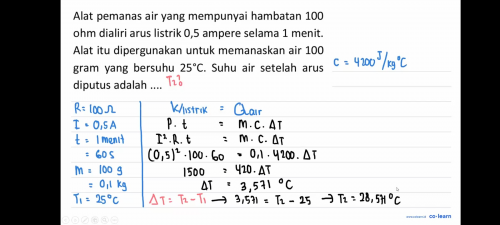 Alat pemanas air yang mempunyai hambatan 100
ohm dialiri arus listrik 0,5 ampere selama 1 menit.
Alat itu dipergunakan untuk memanaskan air 100
gram yang bersuhu 25°C. Suhu air setelah arus
diputus adalah .... T₂?
C = 4200 J/kg°C
R = 100 Ω
I = 0,5 A
t = 1 menit
= 60 s
m = 100 g
= 0,1 kg
T₁ = 25°C
Klistrik = Qair
P. t = m. C. ΔT
I². R. t = m. C. ΔT
(0,5)². 100. 60 = 0,1. 4200. ΔT
1500 = 420. ΔT
ΔT = 3,571 °C
ΔT = T₂ - T₁ → 3,571 = T₂ - 25 → T₂ = 28,571 °C
co-learn